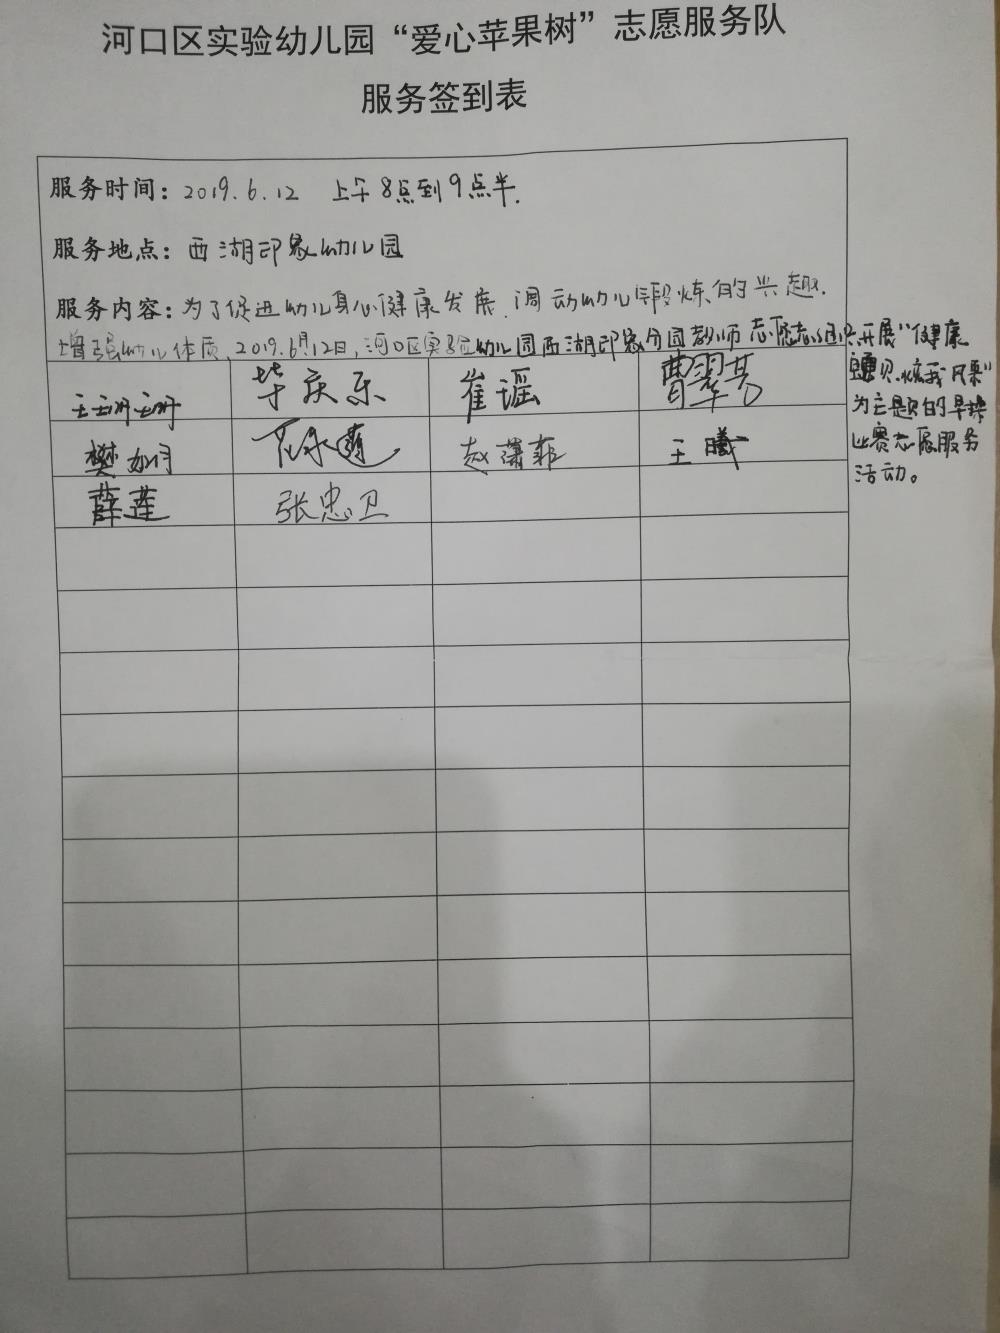 河口区实验幼儿园“爱心苹果树”志愿服务队
服务签到表
服务时间：2019.6.12 上午8点到9点半.
服务地点：西湖印象幼儿园
服务内容：为了促进幼儿身心健康发展.调动幼儿锻炼的兴趣.
增强幼儿体质,2019.6月12日,河口区实验幼儿园西湖印象分园教师志愿志开展“健康
宝贝.炫我风采”
为主题的早操
比赛志愿服务
活动。
崔谣 曹翠芳
樊如月 赵潇菲 王曦
薛莲 张忠卫